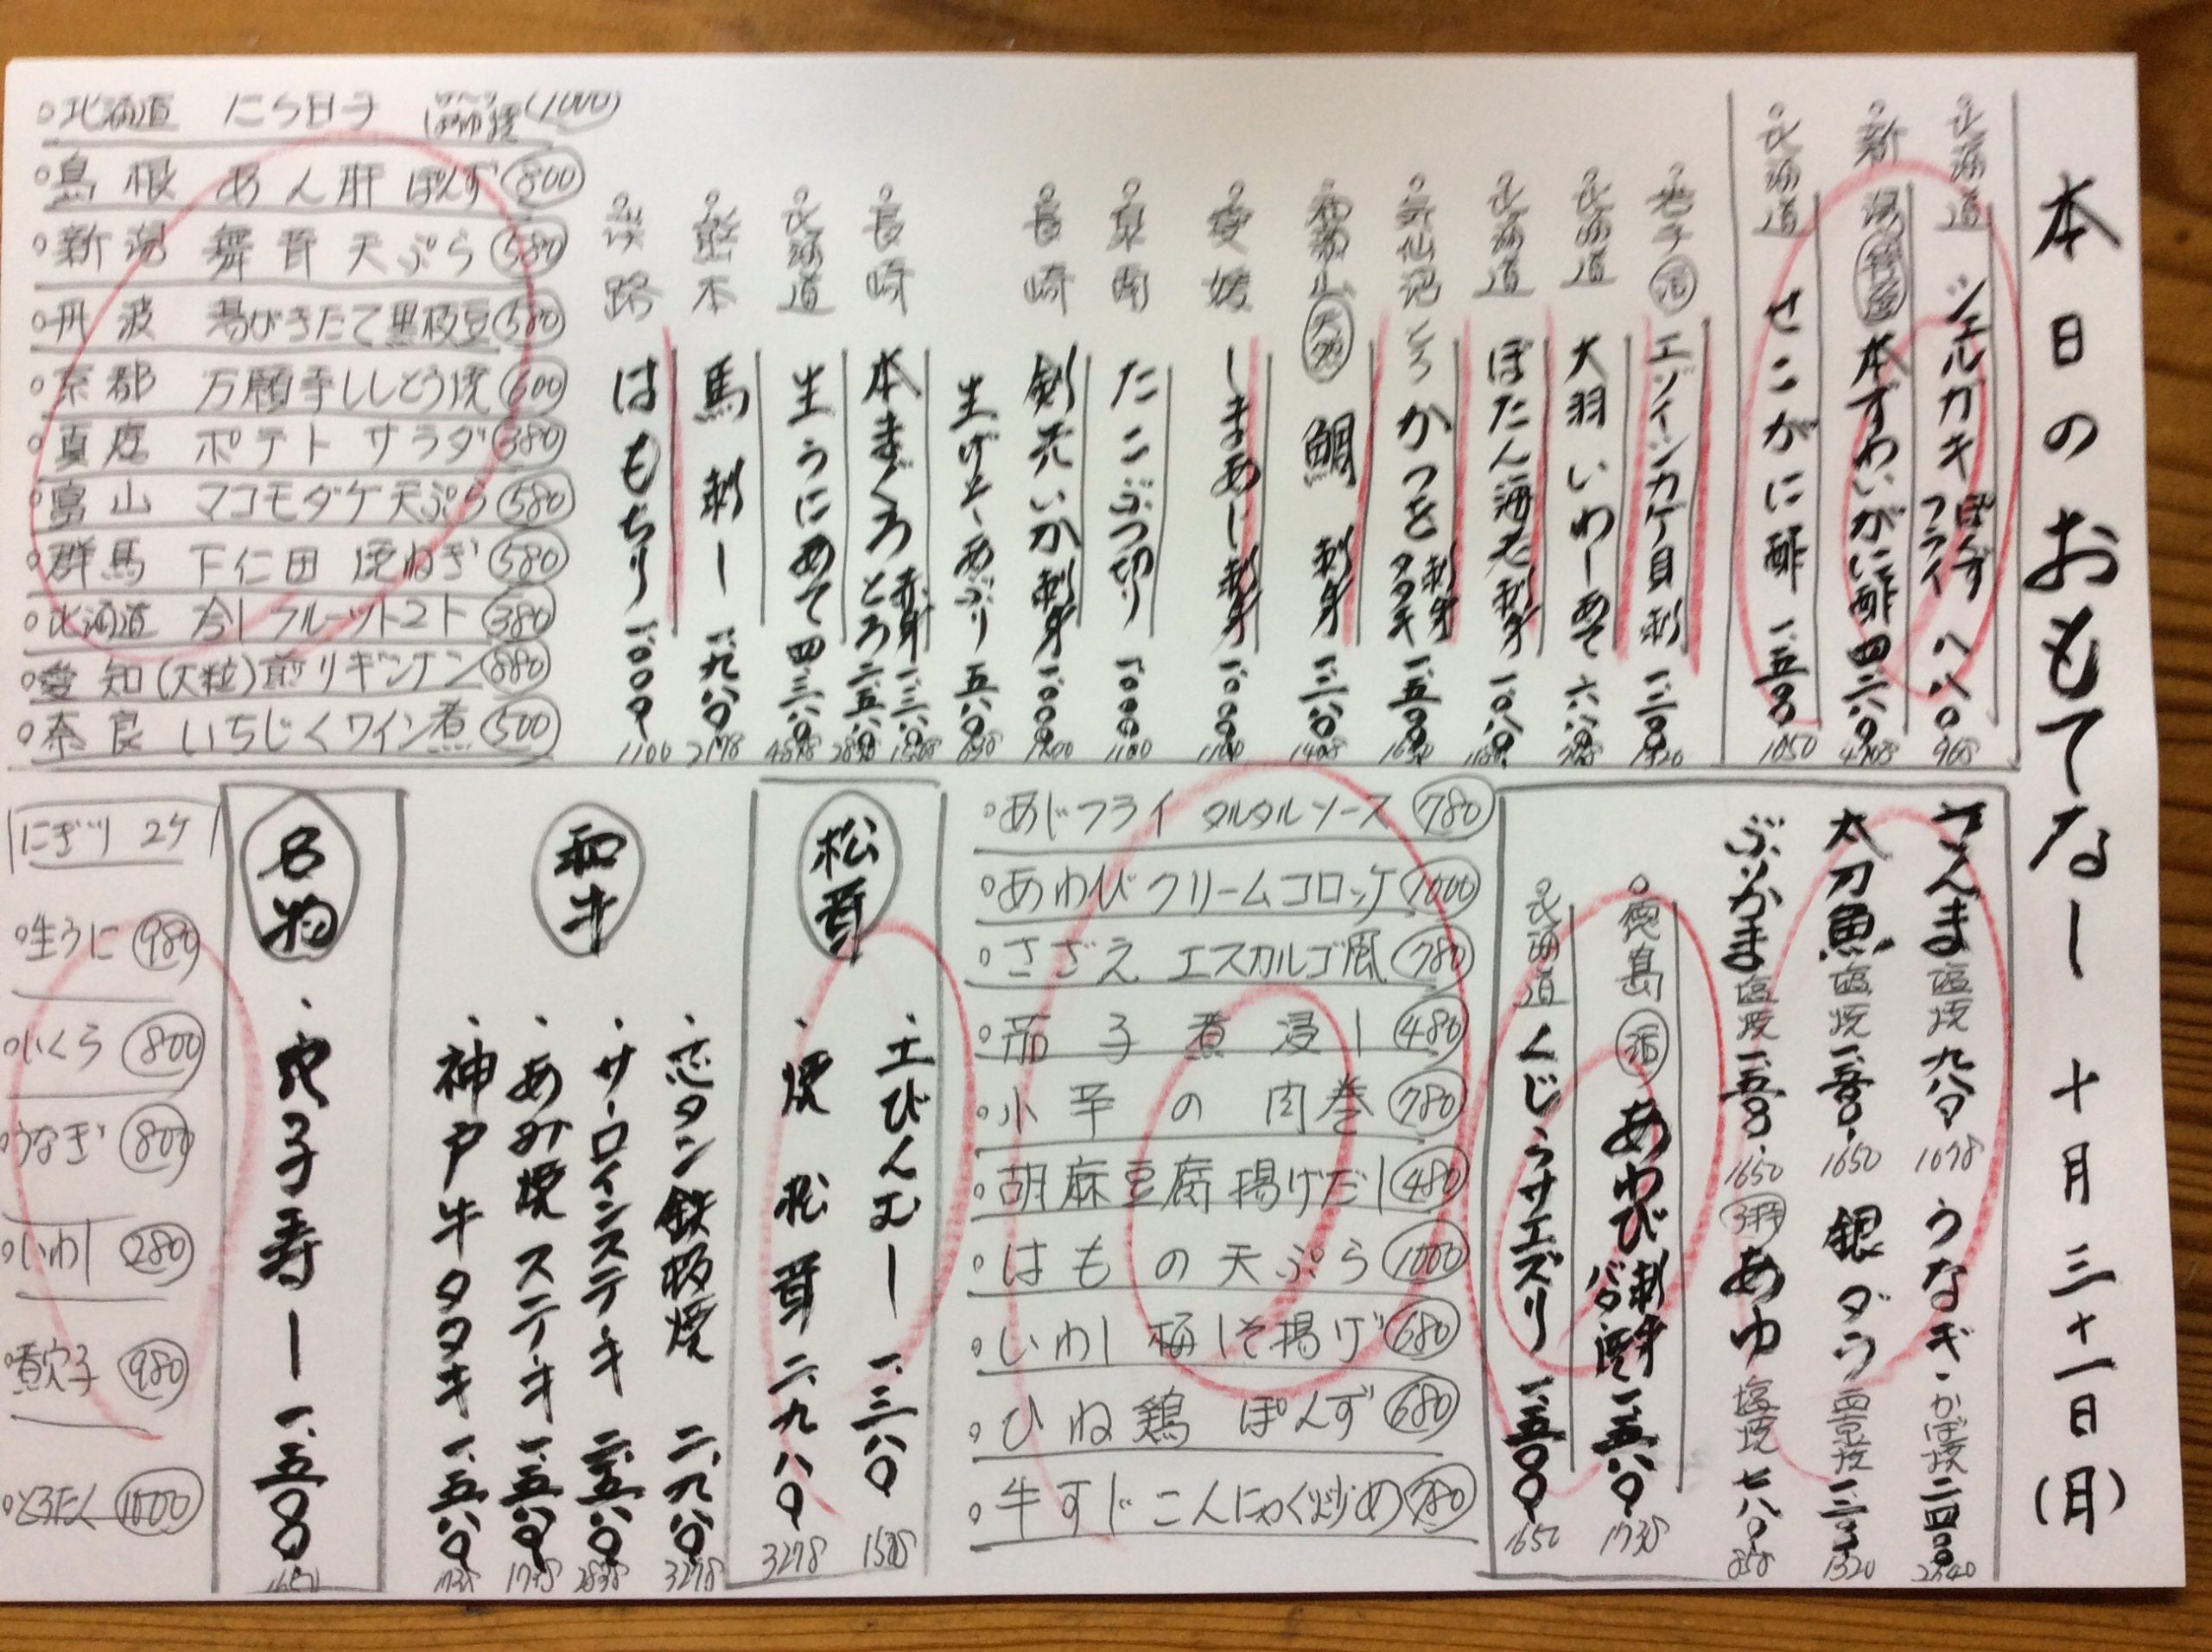 本日のおもてなし 十月三十一日(月)
北海道 シェルカキ ぽんず フライ 八八〇 968
新潟 本ずわいがに酢 四二八〇 4708
北海道 せこがに酢 一、五〇〇 1650
岩子 活 エゾイシカゲ貝刺 一、二〇〇 1320
北海道 大羽いわしあて 六八〇
北海道 ぼたん海老刺身 一、〇八〇
気仙沼 とろかつを 刺身 タタキ 一、五〇〇 1650
和歌山 天然 鯛刺身 一、二八〇 1408
愛媛 しまあじ刺身 一、〇〇〇 1100
たこぶつ切り 一、〇〇〇 1100
長崎 剣先いか刺身 一、〇〇〇 1100
生げそあぶり 五八〇 638
長崎 本まぐろ 赤身 一、三八〇 とろ 二、五八〇
北海道 生うにあて 四、三八〇
熊本 馬刺し 一、九八〇 2178
淡路 はもちり 一、〇〇〇 1100
北海道 たら白子 (1000)
島根 あん肝ぽんず 800
新潟 舞茸天ぷら 580
丹波 湯びきたて黒枝豆 580
京都 万願寺ししとう焼 600
真庭 ポテトサラダ 380
富山 マコモダケ天ぷら 580
群馬 下仁田焼ねぎ 580
北海道 冷しフルーツトマト 380
愛知(大粒)煎りギンナン 880
奈良 いちじくワイン煮 500
さんま 塩焼 九八〇 1078 うなぎ・かば焼 二、四〇〇 2640
太刀魚 塩焼 一、五〇〇 1650 銀ダラ 西京焼 一、二〇〇 1320
ぶりかま 塩焼 一、五〇〇 1650 あゆ 塩焼 七八〇 858
徳島 活 あわび 刺身 バター焼 一、五八〇 1738
北海道 くじらサエズリ 一、五〇〇 1650
あじフライ タルタルソース 780
あわびクリームコロッケ 1000
さざえ エスカルゴ風 780
茄子煮浸し 480
小芋の肉巻 780
胡麻豆腐揚げだし 480
はもの天ぷら 1000
いわし梅しそ揚げ 680
ひね鶏 ぽんず 680
牛すじこんにゃく炒め 780
松茸
土びんむし 一、三八〇 1518
焼松茸 二、九八〇 3278
和牛
・芯タン鉄板焼 二、九八〇 3278
・サーロインステーキ 二、五八〇 2838
・あみ焼ステーキ 一、五八〇 1738
・神戸牛タタキ 一、五八〇 1738
名物
・穴子寿し 一、五〇〇 1650
にぎり 2ケ
生うに 980
いくら 800
うなぎ 800
いわし 280
煮穴子 980
とろたく 1000